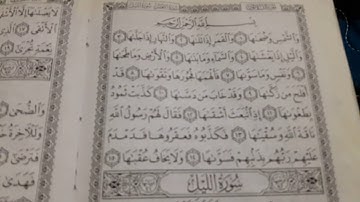 بِسْمِ اللَّهِ الرَّحْمَٰنِ الرَّحِيمِ
وَالشَّمْسِ وَضُحَىٰهَا ١ وَالْقَمَرِ إِذَا تَلَىٰهَا ٢ وَالنَّهَارِ إِذَا جَلَّىٰهَا ٣
وَاللَّيْلِ إِذَا يَغْشَىٰهَا ٤ وَالسَّمَاءِ وَمَا بَنَىٰهَا ٥ وَالْأَرْضِ وَمَا طَحَىٰهَا
٦ وَنَفْسٍ وَمَا سَوَّىٰهَا ٧ فَأَلْهَمَهَا فُجُورَهَا وَتَقْوَىٰهَا ٨ قَدْ
أَفْلَحَ مَن زَكَّىٰهَا ٩ وَقَدْ خَابَ مَن دَسَّىٰهَا ١٠ كَذَّبَتْ ثَمُودُ
بِطَغْوَىٰهَا ١١ إِذِ انبَعَثَ أَشْقَىٰهَا ١٢ فَقَالَ لَهُمْ رَسُولُ اللَّهِ
نَاقَةَ اللَّهِ وَسُقْيَٰهَا ١٣ فَكَذَّبُوهُ فَعَقَرُوهَا فَدَمْدَمَ
عَلَيْهِمْ رَبُّهُم بِذَنبِهِمْ فَسَوَّىٰهَا ١٤ وَلَا يَخَافُ عُقْبَٰهَا ١٥
سُورَةُ اللَّيْلِ
وَالضُّحَىٰ
وَلَلْآخِرَةُ
فَتَرْضَىٰ
فَهَدَىٰ